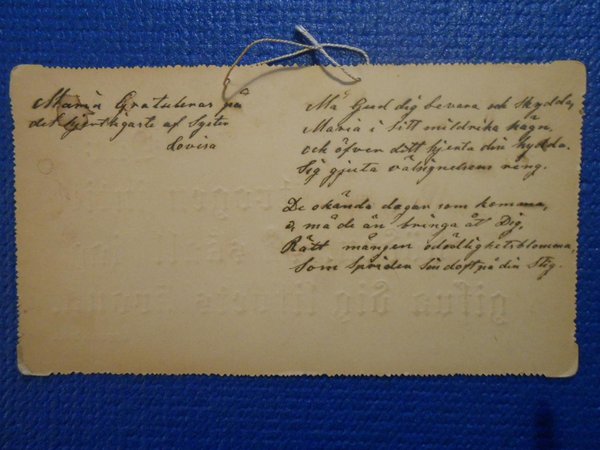 Maria Gratuleras på
det hjertligaste af Syster
Lovisa
Må Gud dig bevara och skydda,
Maria i Sitt mildrika hägn,
och öfver ditt hjerta din hydda.
Sig gjuta välsignelsens rägn.
De okända dagar som komma,
o, må de än bringa åt Dig,
Rätt mången odödlighetsblomma,
Som sprider Sin doft på din Stig.
gifva dig hjertats